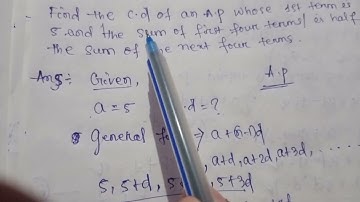 Find the c.d of an A.P whose 1st term is
5 and the sum of first four terms is half
the sum of the next four terms.
Ans :- Given, A.P
a = 5 d = ?
General → a + (n-1)d
a+d, a+2d, a+3d, .....
5, 5+d, 5+3d